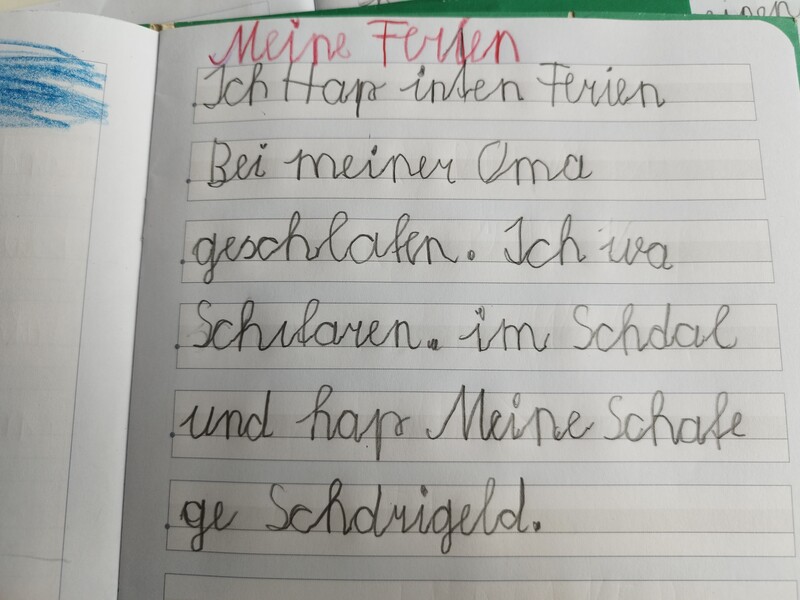 Meine Ferien
Ich Hap inten Ferien
Bei meiner Oma
geschlafen. Ich wa
Schifaren. im Schdal
und hap Meine Schafe
ge Schdrigeld.